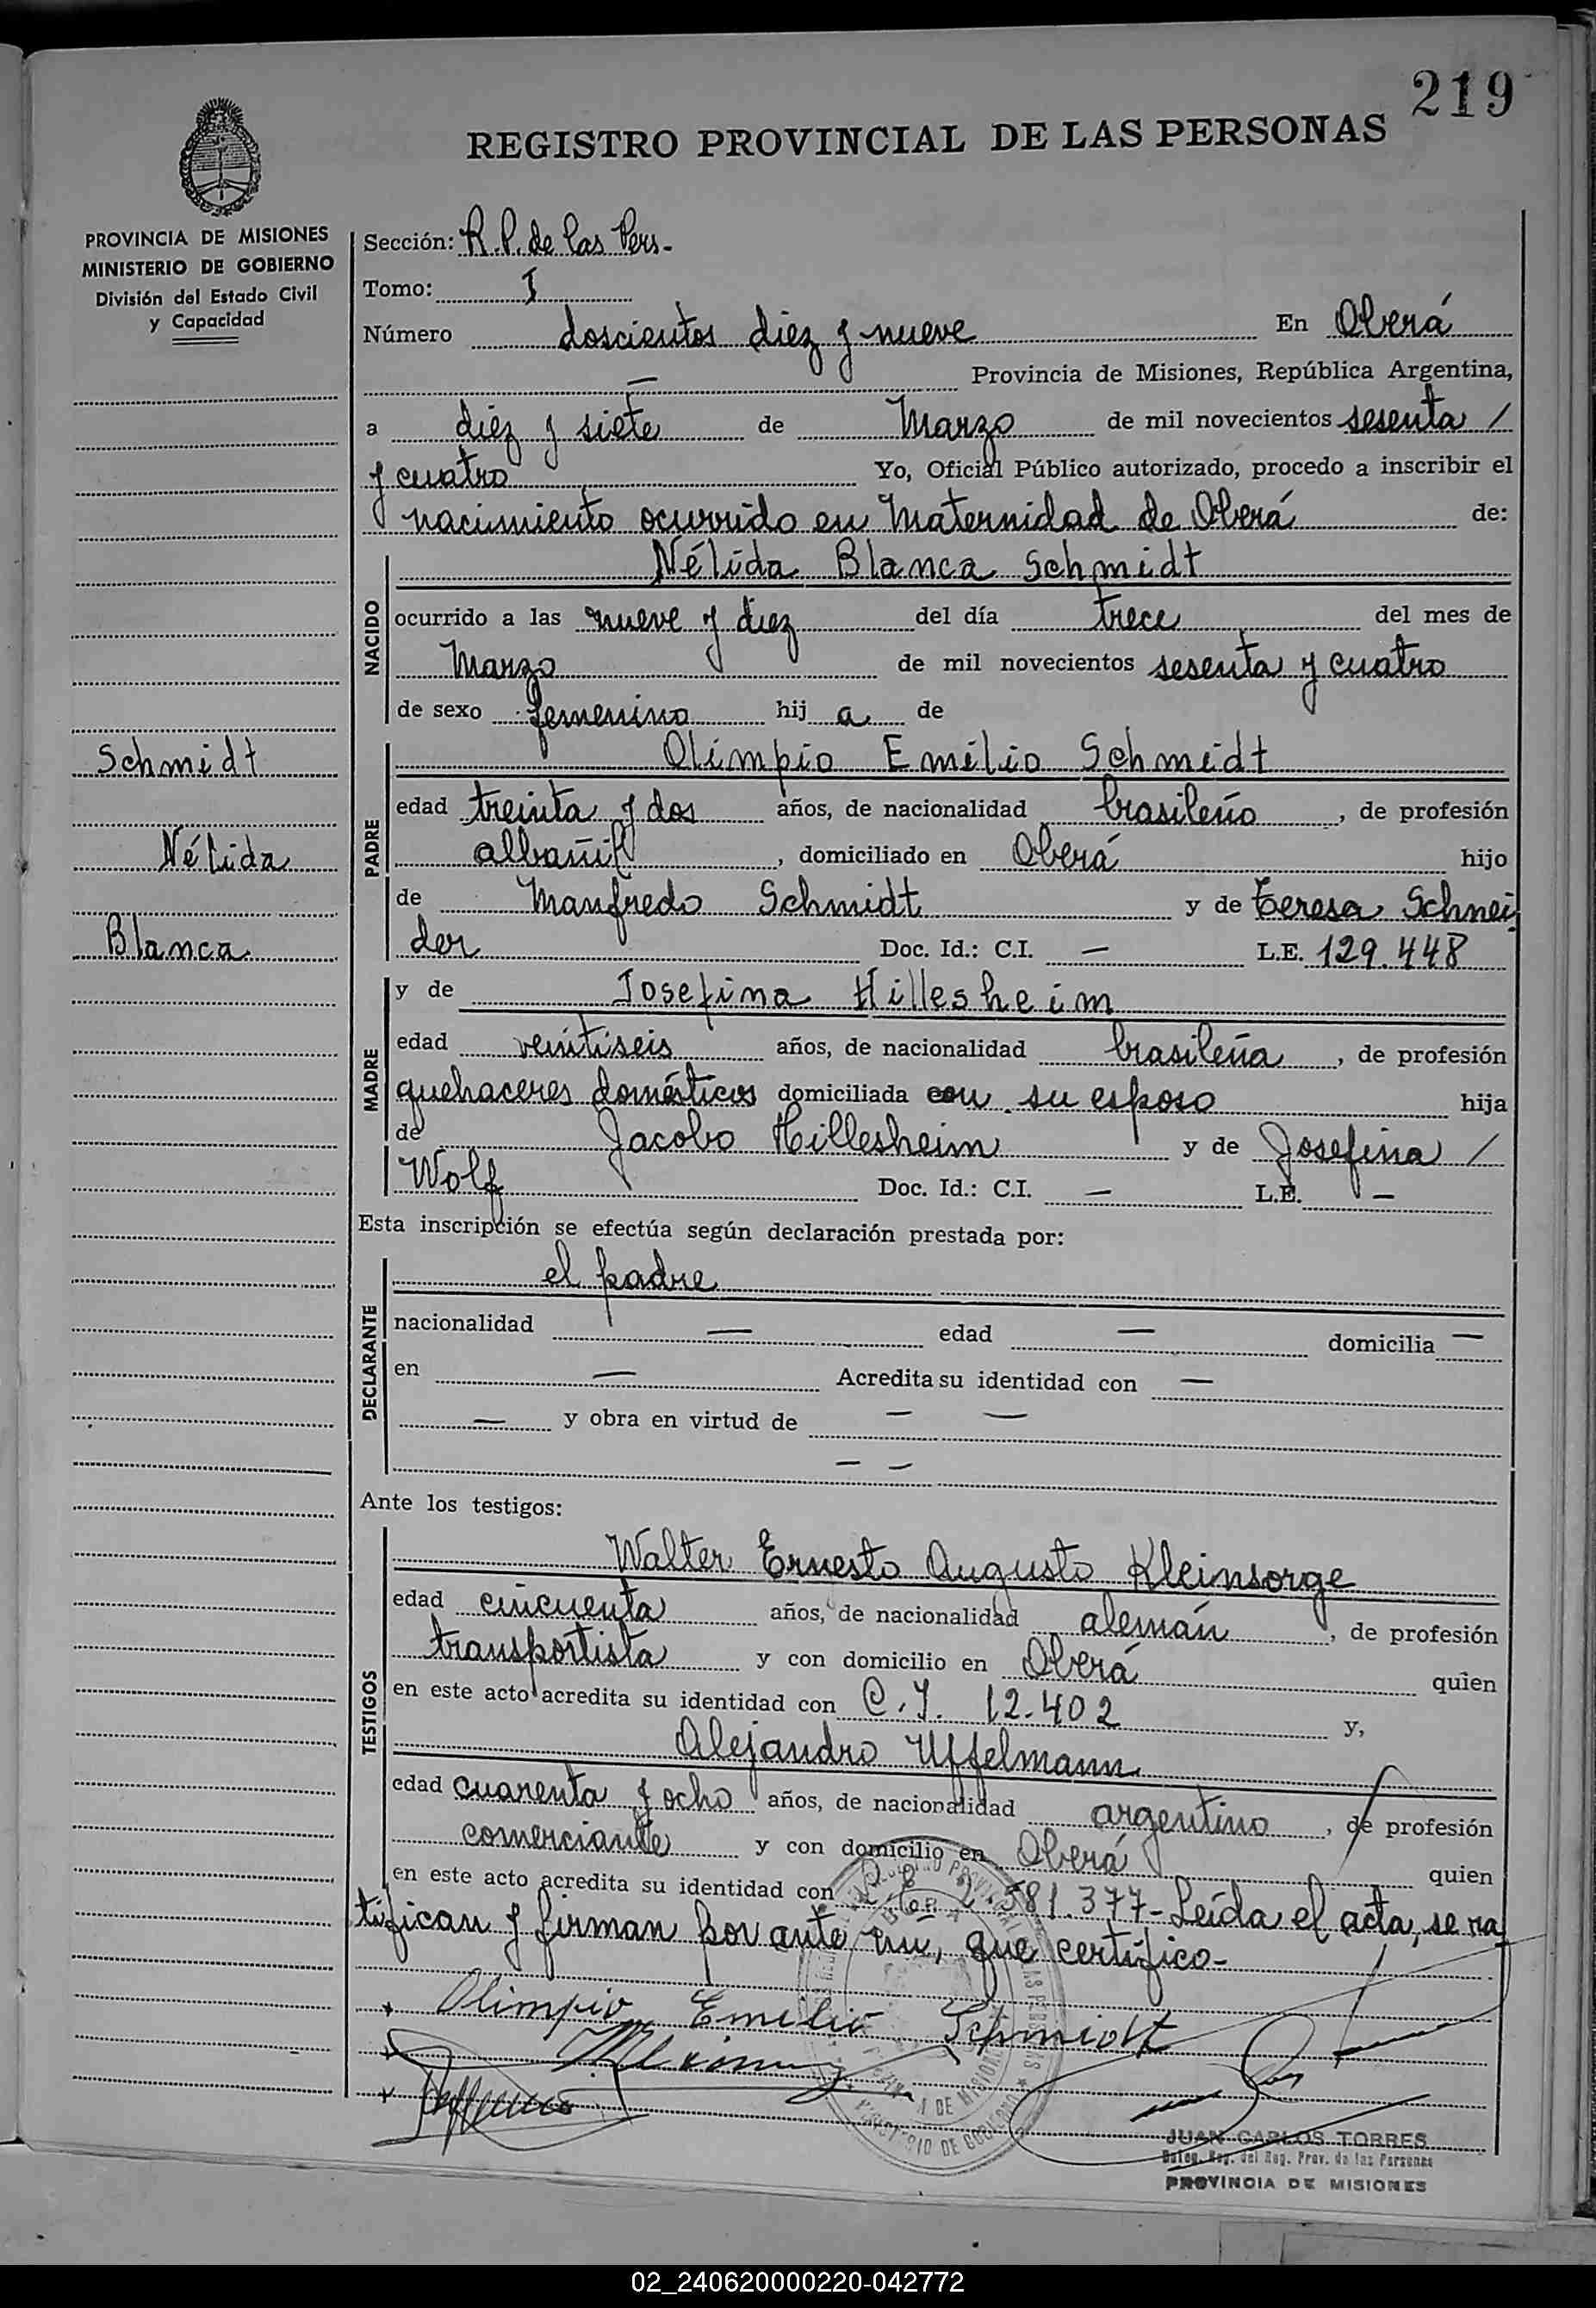 219
REGISTRO PROVINCIAL DE LAS PERSONAS
PROVINCIA DE MISIONES
MINISTERIO DE GOBIERNO
División del Estado Civil
y Capacidad
Schmidt
Nélida
Blanca
Sección: R.P. de las Pers.-
Tomo: I
Número doscientos diez y nueve En Oberá
— Provincia de Misiones, República Argentina,
a diez y siete de Marzo de mil novecientos sesenta /
y cuatro Yo, Oficial Público autorizado, procedo a inscribir el
nacimiento ocurrido en Maternidad de Oberá de:
NACIDO
Nélida Blanca Schmidt
ocurrido a las nueve y diez del día trece del mes de
Marzo de mil novecientos sesenta y cuatro
de sexo femenino hij a de
PADRE
Olimpio Emilio Schmidt
edad treinta y dos años, de nacionalidad brasileño, de profesión
albañil, domiciliado en Oberá hijo
de Manfredo Schmidt y de Teresa Schnei
der Doc. Id.: C.I. — L.E. 129.448
MADRE
y de Josefina Hillesheim
edad veintiseis años, de nacionalidad brasileña, de profesión
quehaceres domésticos domiciliada con su esposo hija
de Jacobo Hillesheim y de Josefina /
Wolf Doc. Id.: C.I. — L.E. —
Esta inscripción se efectúa según declaración prestada por:
DECLARANTE
el padre
nacionalidad — edad — domicilia —
en — Acredita su identidad con —
— y obra en virtud de — —
— —
Ante los testigos:
TESTIGOS
Walter Ernesto Augusto Kleinsorge
edad cincuenta años, de nacionalidad alemán, de profesión
transportista y con domicilio en Oberá quien
en este acto acredita su identidad con C.I. 12.402 y,
Alejandro Uffelmann
edad cuarenta y ocho años, de nacionalidad argentino, de profesión
comerciante y con domicilio en Oberá quien
en este acto acredita su identidad con L.E. 2.581.377- Leída el acta, se ra
tifican y firman por ante mi, que certifico-
Olimpio Emilio Schmidt
JUAN CARLOS TORRES
Deleg. Reg. del Reg. Prov. de las Personas
PROVINCIA DE MISIONES
02_240620000220-042772